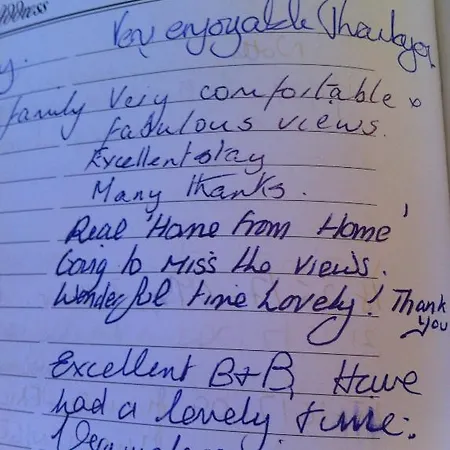 Address
Very enjoyable Thankyou
family Very comfortable &
fabulous views.
Excellent stay
Many thanks.
Real 'Home From Home'
Going to Miss the views.
Wonderful time Lovely! Thank
you
Excellent B+B, Have
had a lovely time.